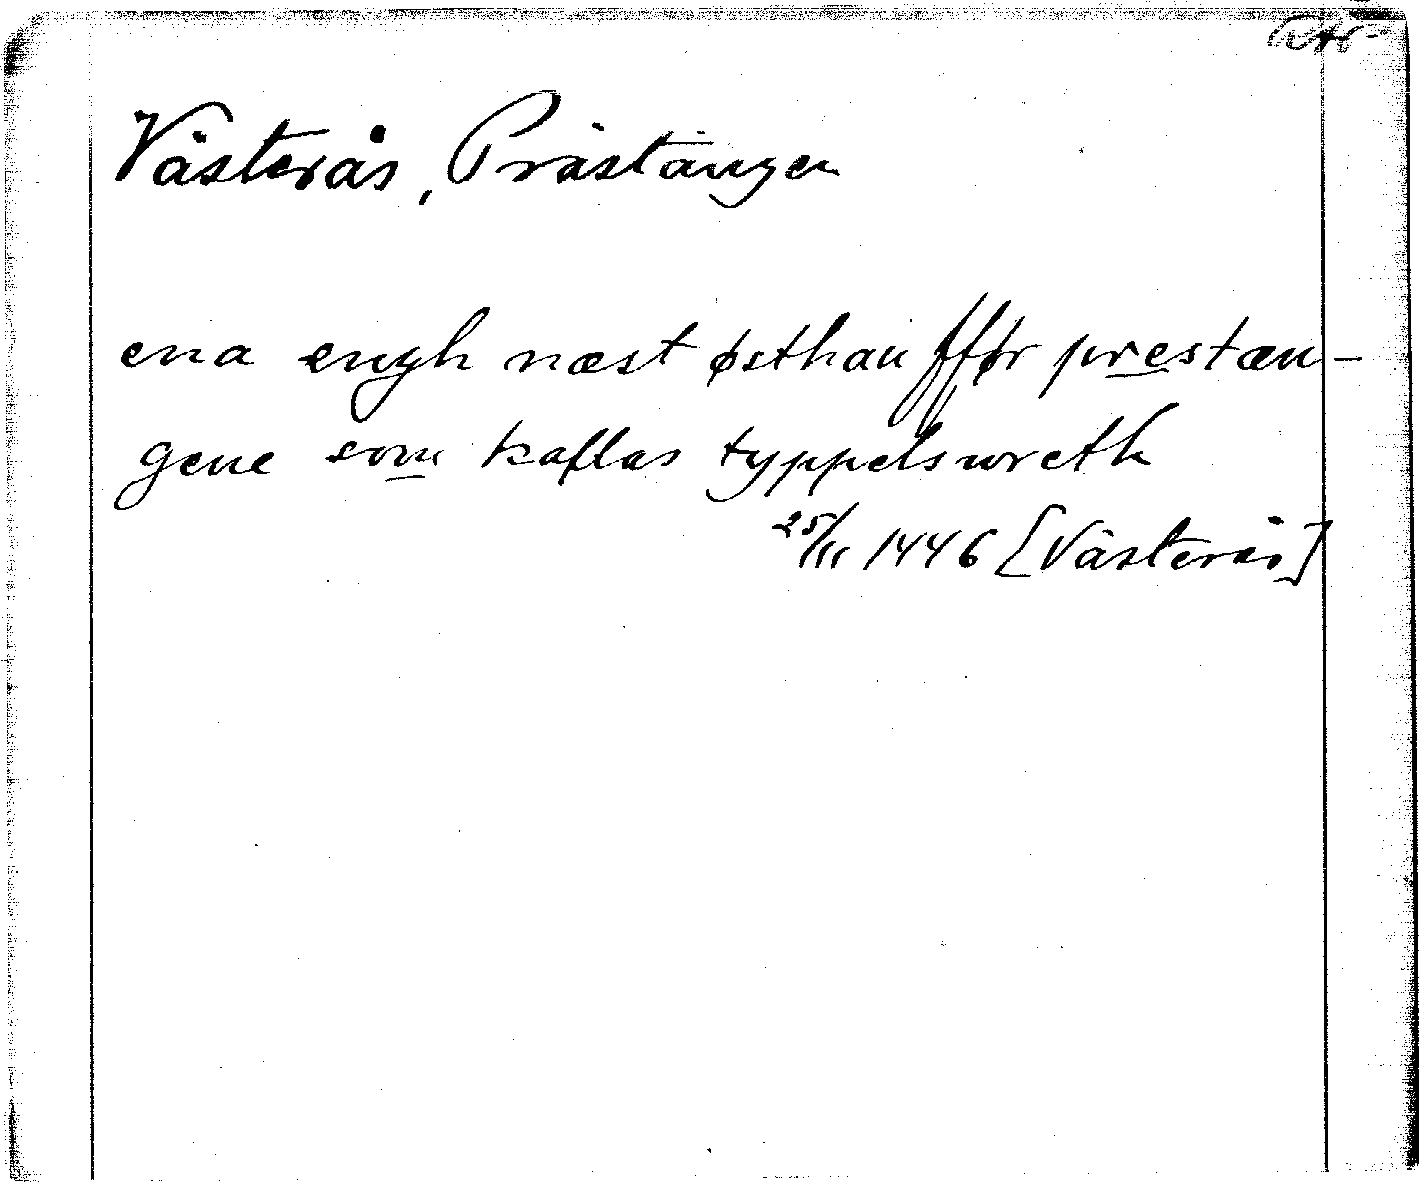 Västerås, Prästängen
ena engh næst østhan ffør prestæn-
gene som kallas typpelswreth
25/III 1446 [Västerås]